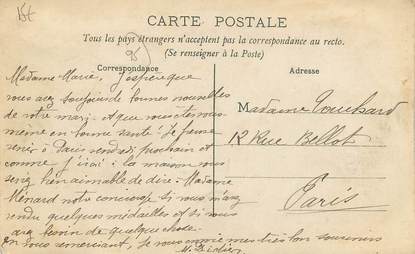 15f
CARTE POSTALE
Tous les pays étrangers n'acceptent pas la correspondance au recto.
(Se renseigner à la Poste)
Correspondance
Adresse
Madame Marie, J'espère que
vous avez toujours de bonnes nouvelles
de votre mari et que vous êtes vous
même en bonne santé. Je pense
venir à Paris vendredi prochain et
comme j'irai à la maison vous
serez bien aimable de dire à Madame
Ménard notre concierge si vous m'avez
rendu quelques médailles et si vous
avez besoin de quelque chose.
en vous remerciant, je vous envoie mes très bons souvenirs
Madame Touchard
12 Rue Bellot
Paris